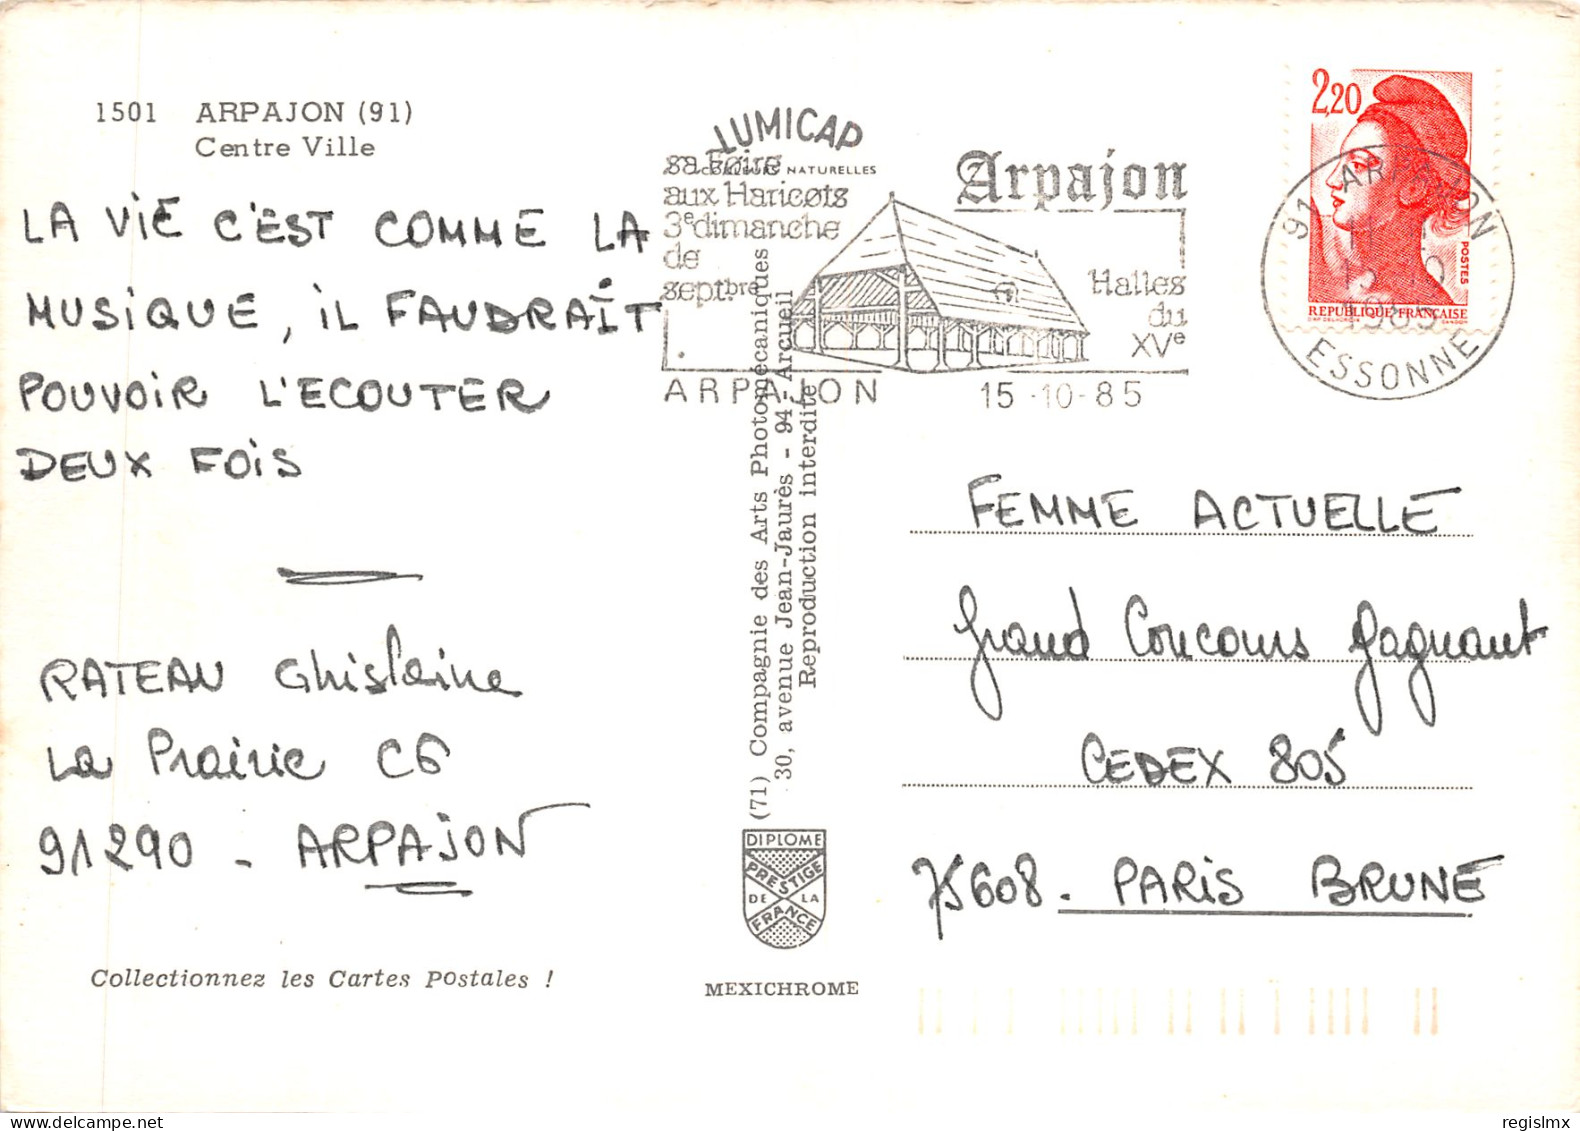 1501 ARPAJON (91)
Centre Ville
LA VIE C'EST COMME LA
MUSIQUE, IL FAUDRAÎT
POUVOIR L'ECOUTER
DEUX FOIS
RATEAU Ghislaine
La Prairie C6
91290 - ARPAJON
Collectionnez les Cartes Postales !
LUMICAP
NATURELLES
sa Foire
aux Haricots
3e dimanche
de
septbre
Arpajon
Halles
du
XVe
ARPAJON 15-10-85
(71) Compagnie des Arts Photomécaniques
30, avenue Jean-Jaurès - 94 - Arcueil
Reproduction interdite
DIPLOME
PRESTIGE
DE LA
FRANCE
MEXICHROME
2,20
POSTES
REPUBLIQUE FRANÇAISE
91 ARPAJON
15-10
1985
ESSONNE
FEMME ACTUELLE
Grand Concours Gagnant
CEDEX 805
75608 - PARIS BRUNE
regislmx